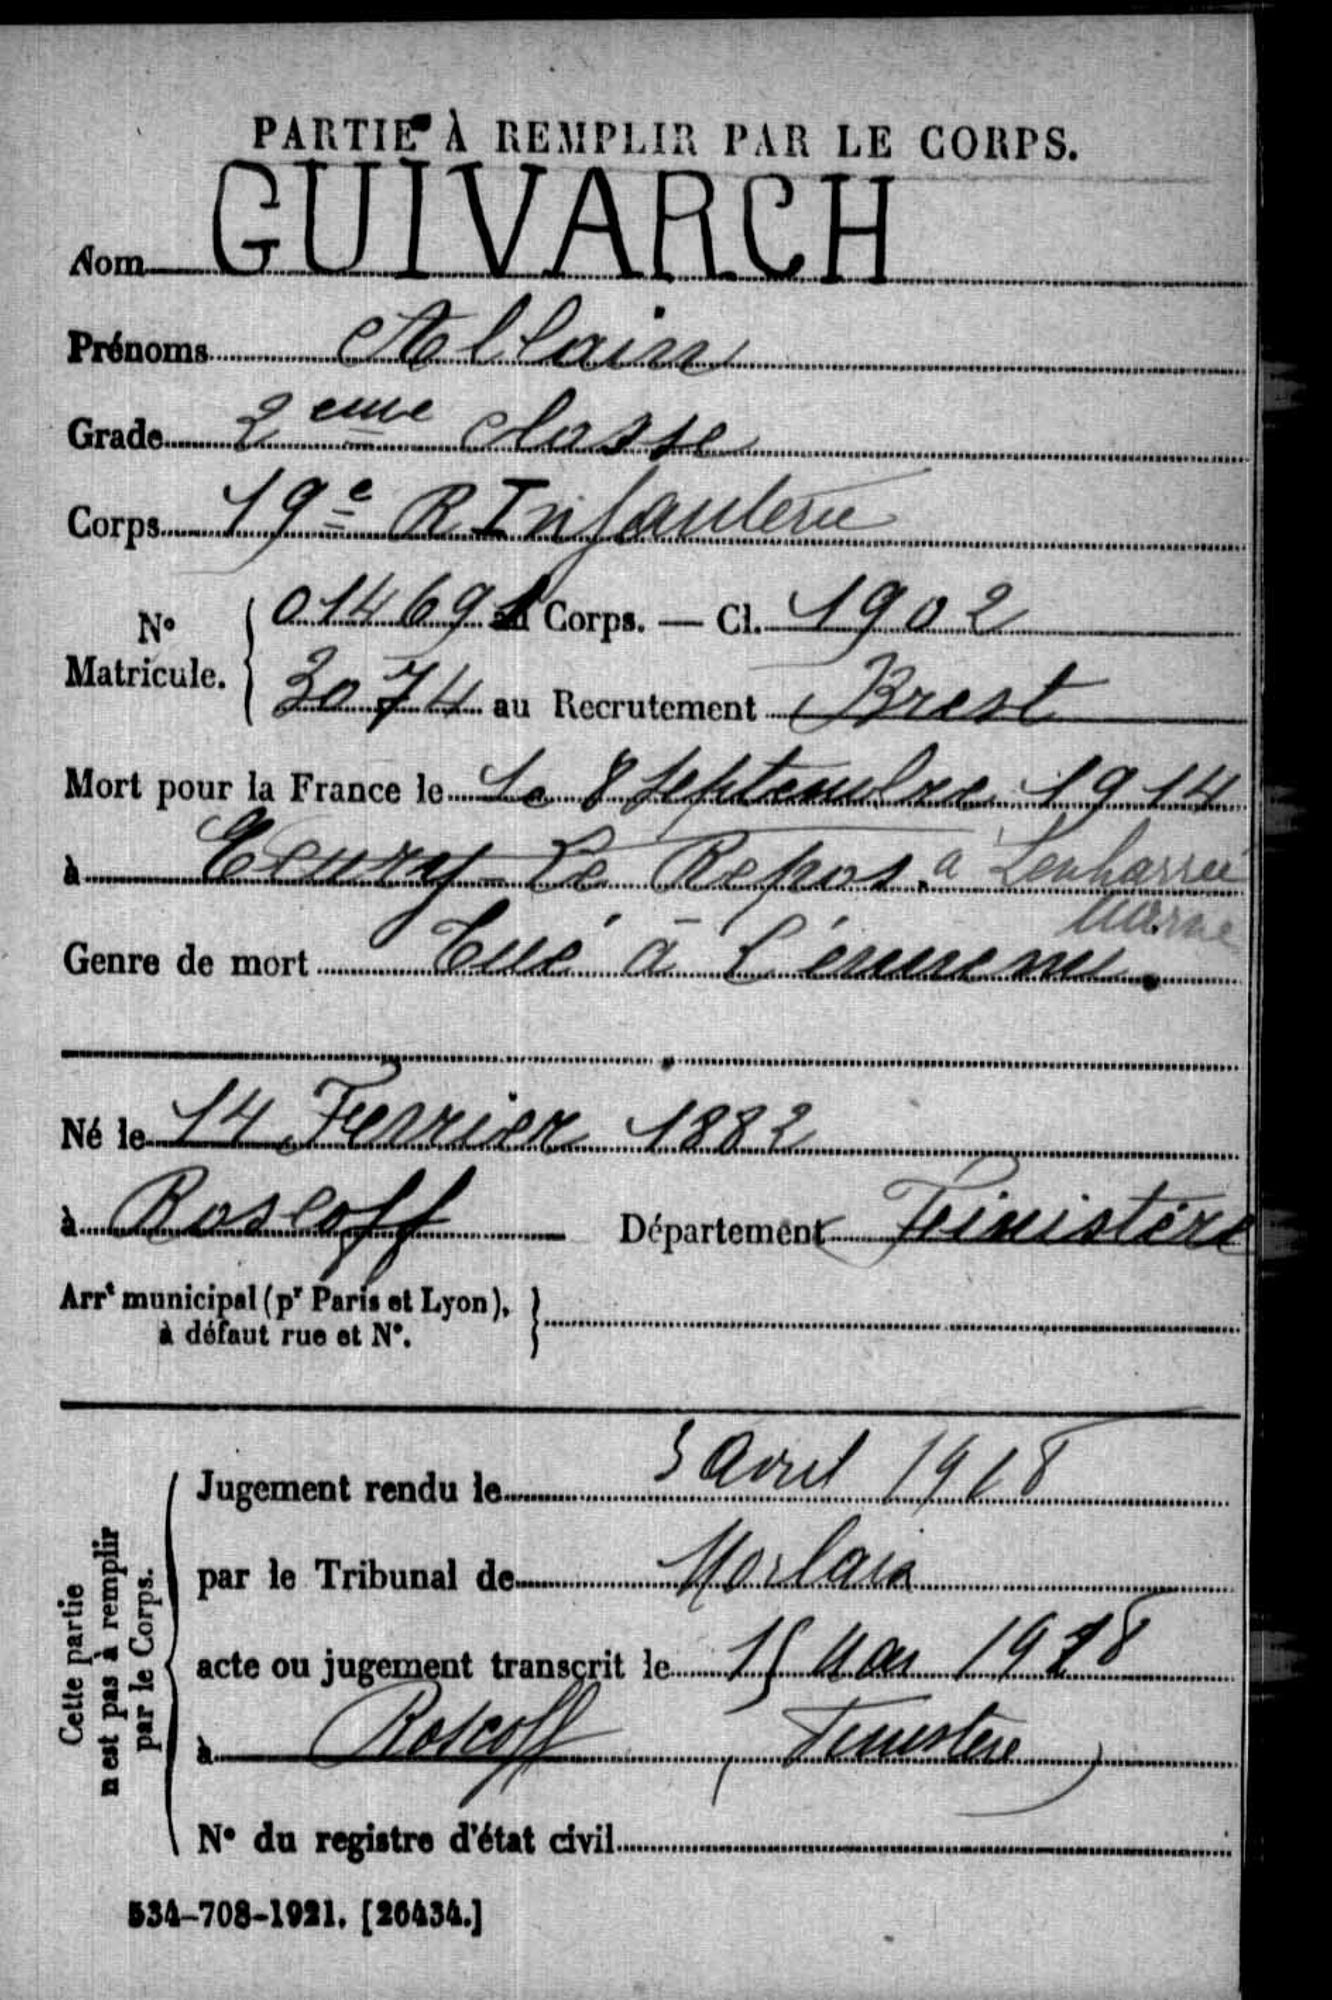 PARTIE À REMPLIR PAR LE CORPS.
Nom GUIVARCH
Prénoms Allain
Grade 2eme classe
Corps 19e R Infanterie
N° Matricule. 014691 au Corps. — Cl. 1902
3074 au Recrutement Brest
Mort pour la France le Le 8 Septembre 1914
à Ecury-Le Repos. a Lenharrée
Marne
Genre de mort Tué à L'ennemi.
Né le 14 Fevrier 1882
à Roscoff Département Finistère
Arrt municipal (pr Paris et Lyon),
à défaut rue et N°.
Cette partie
n'est pas à remplir
par le Corps.
Jugement rendu le 3 Avril 1918
par le Tribunal de Morlaix
acte ou jugement transcrit le 15 Mai 1918
à Roscoff (Finistère)
N° du registre d'état civil
534-708-1921. [26434.]